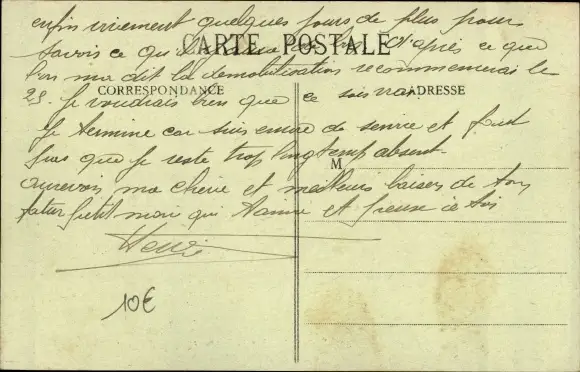 enfin vivement quelques jours de plus pour
savoir ce qu'il y aura D'après ce que
CARTE POSTALE
l'on m'a dit la démobilisation recommencerai le
25. Je voudrais bien que ce sois vrai
CORRESPONDANCE ADRESSE
Je termine car suis encore de service et faut
pas que je reste trop longtemp absent
M
aurevoir ma cherie et meilleurs baiser de ton
futur petit mari qui t'aime et pense à toi
Henri
10€